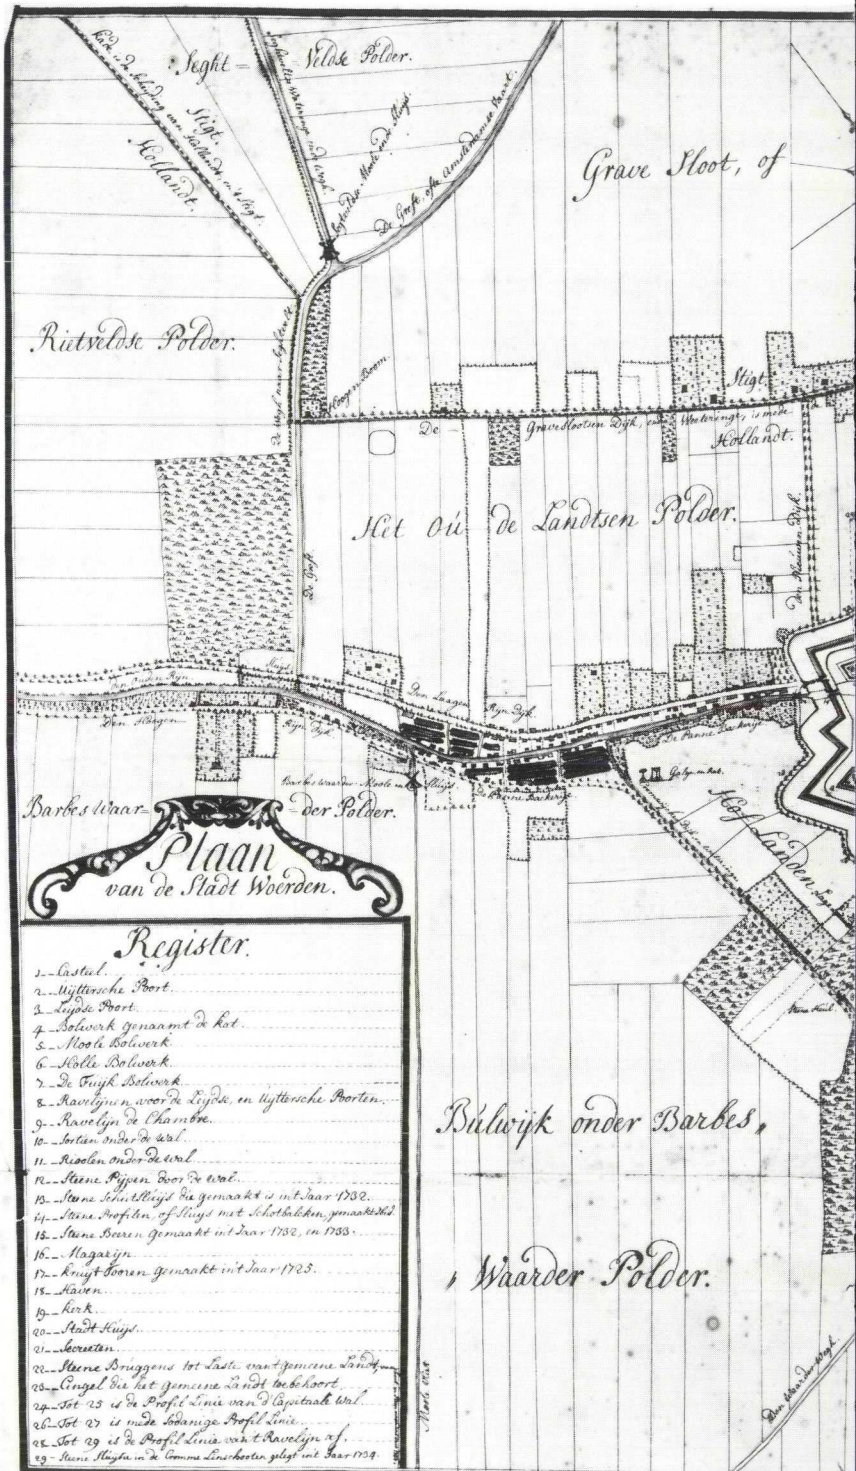 Seght - Veldse Polder.
Stigt.
Hollandt.
Kade is de scheijding van Hollandt en 't Stigt.
De Greft, ofte Amsterdamse Vaart.
Grave Sloot, of
Rietveldse Polder.
Hoogen Boom.
Stigt.
De Graveslootsen Dijk, en Weeteringe, is mede
Hollandt.
Het Oú de Landtsen Polder.
Den Nieuwen Dijk.
De Greft.
Den Ouden Rijn.
Sluijs
Den Laagen Rijn Dyk.
Den Hoogen Rijn Dyk.
De Panne Backerije
Galg en Rat.
Barbes waarder Moole en Sluijs.
De Panne Backerij
Barbes Waar- -der Polder.
Hof Landen
Plaan
van de Stadt Woerden.
Register.
1 - Casteel.
2 - Uijttersche Poort.
3 - Leijdse Poort.
4 - Bolwerk genaamt de kat.
5 - Moole Bolwerk.
6 - Holle Bolwerk.
7 - De Fuijk Bolwerk.
8 - Ravelijnen voor de Leijdse, en Uijttersche Poorten.
9 - Ravelijn de Chambre.
10 - Sortien onder de wal.
11 - Rioolen onder de wal.
12 - Steene Pijpen door de wal.
13 - Steene Schut Sluijs die gemaakt is int Jaar 1732.
14 - Steene Profilen, of Sluijs met Schotbalcken, gemaakt
15 - Steene Beeren Gemaakt int Jaar 1732, en 1733.
16 - Magazijn
17 - Kruijt Tooren gemaakt int Jaar 1725.
18 - Haven
19 - Kerk
20 - Stadt Huijs.
21 - Secreeten.
22 - Steene Bruggens tot Laste vant gemeene Landt,
23 - Cingel die het gemeene Landt toebehoort.
24 - Tot 25 is de Profil Linie van d'Capitaale Wal.
26 - Tot 27 is mede Sodanige Profil Linie.
28 - Tot 29 is de Profil Linie van 't Ravelijn af.
29 - Steene Sluijse in de Cromme Linschooten gelegt int Jaar 1734.
Steene Heul.
Búlwijk onder Barbes,
, Waarder Polder.
Moole Vliet
Den Waarder Wegh.